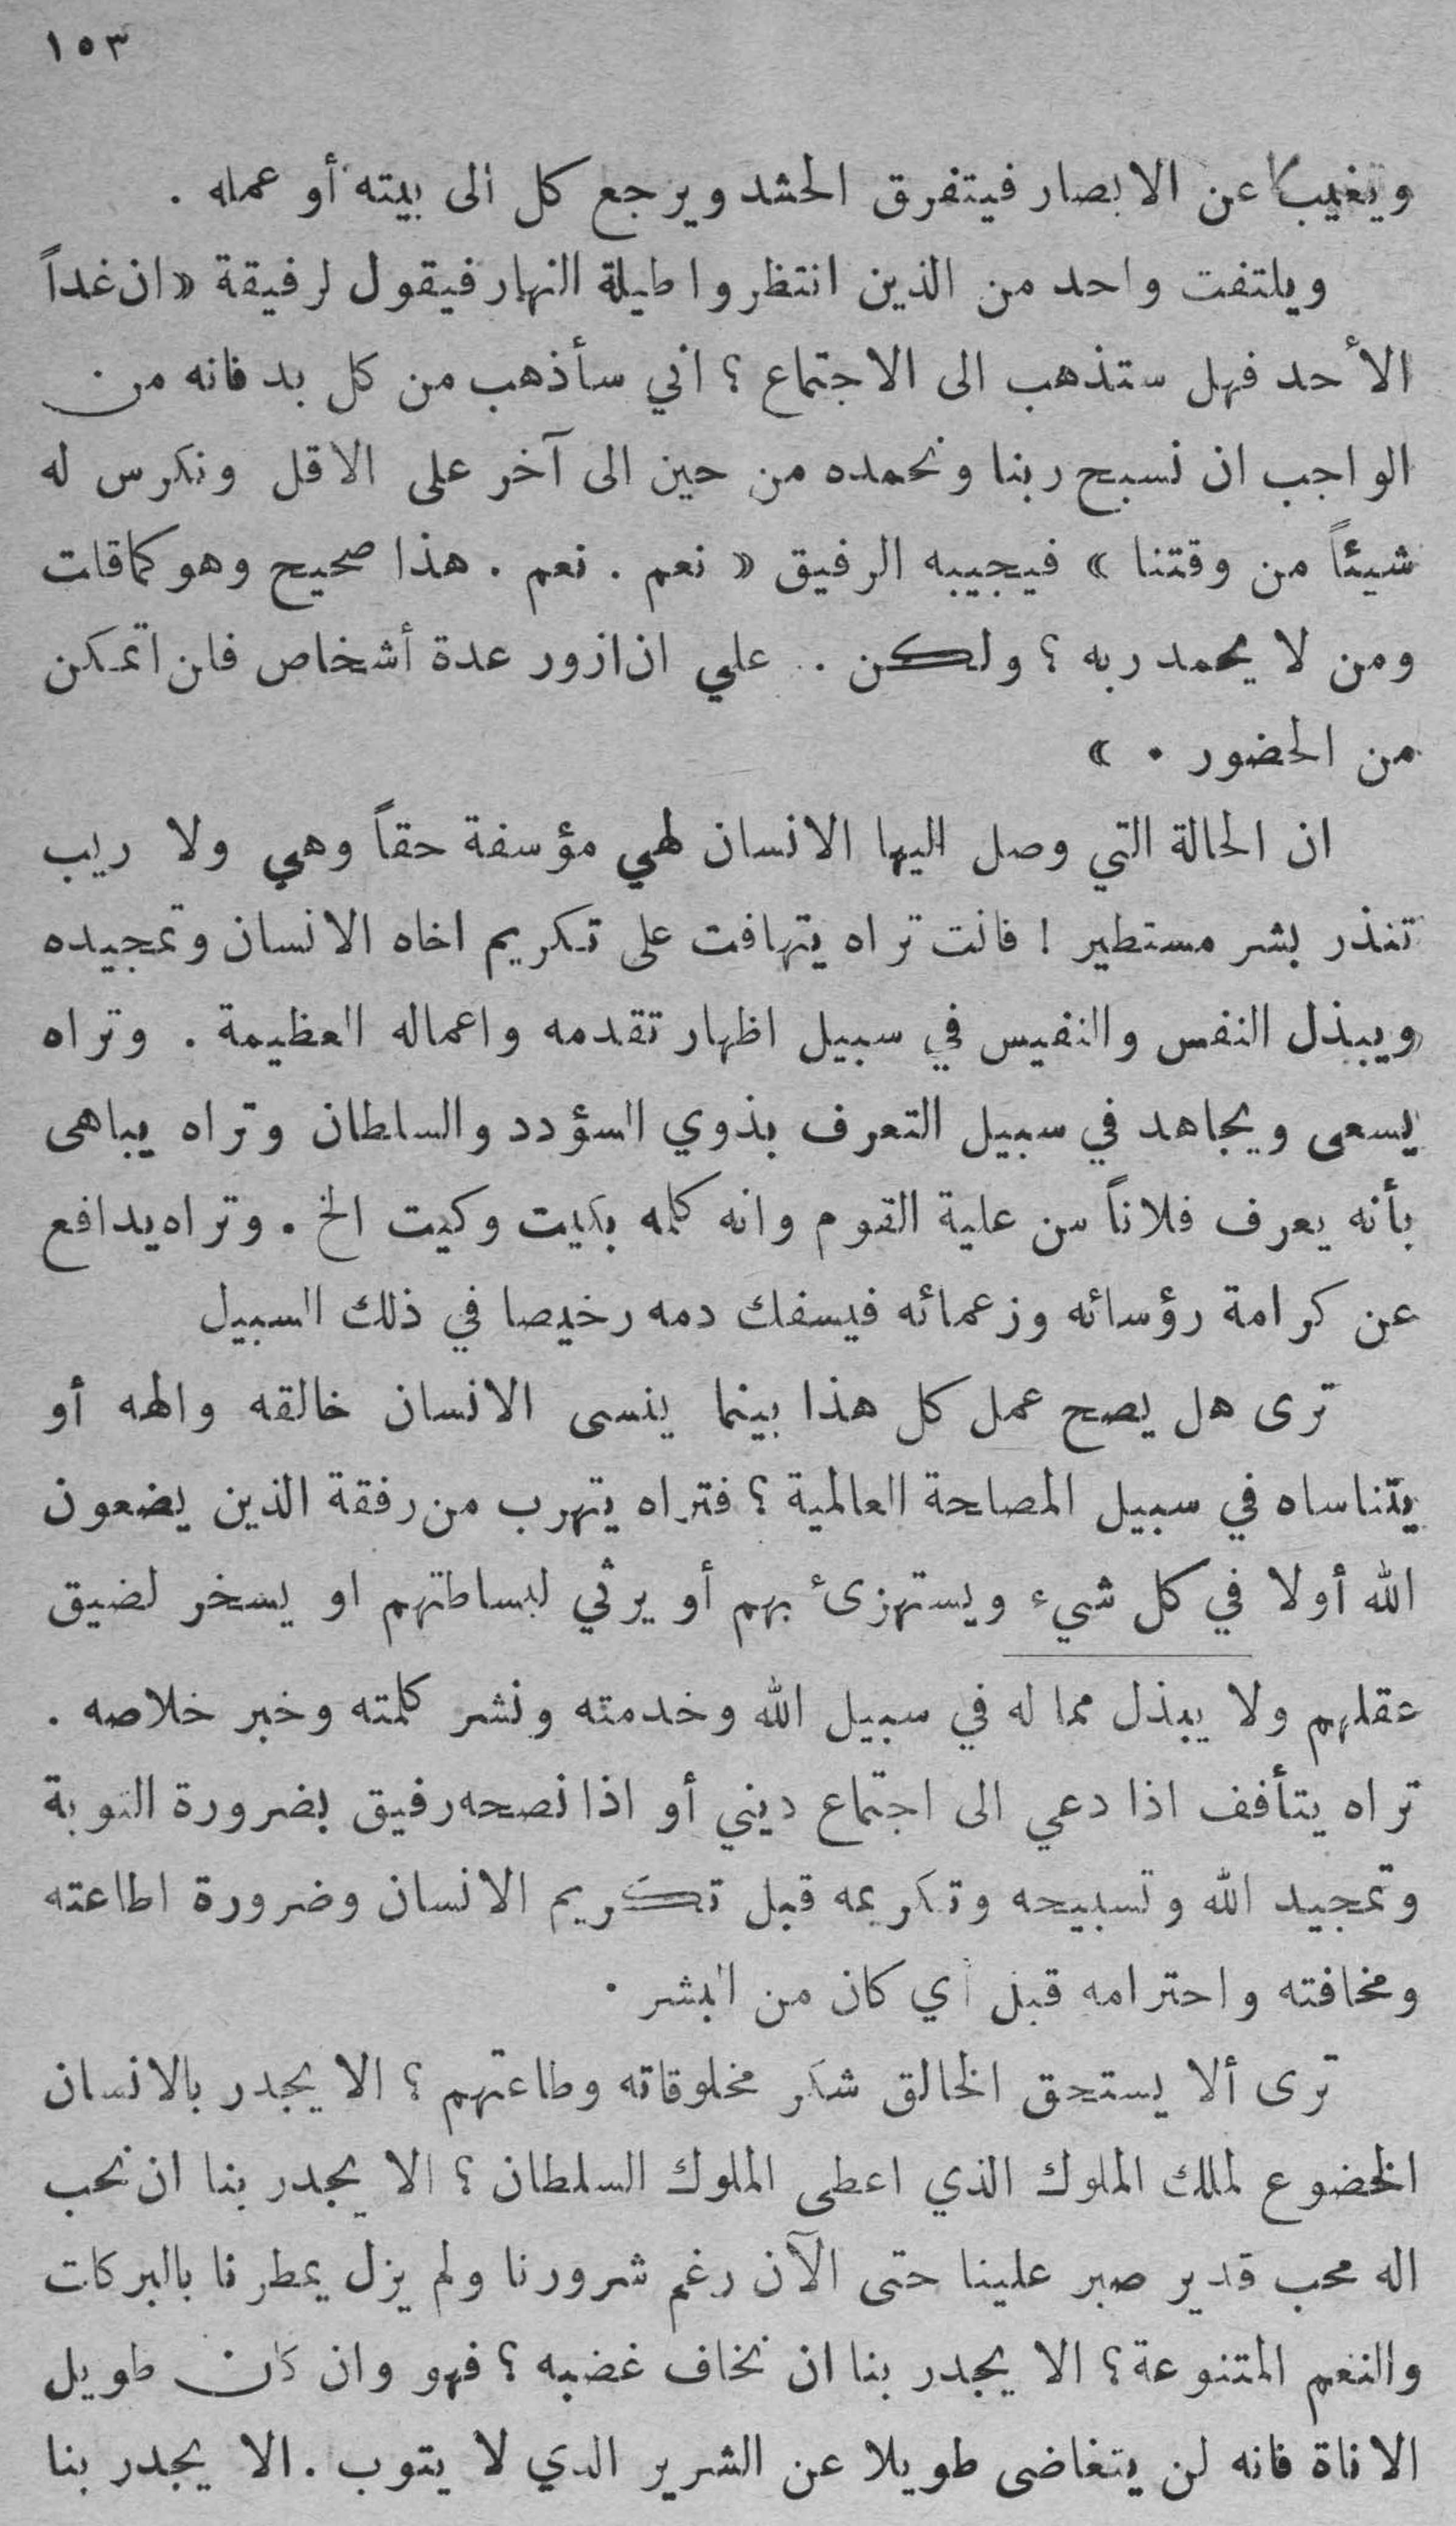 ١٥٣
ويغيب عن الابصار فيتفرق الحشد ويرجع كل الى بيته أو عمله .
ويلتفت واحد من الذين انتظروا طيلة النهار فيقول لرفيقة « ان غداً
الأحد فهل ستذهب الى الاجتماع ؟ اني سأذهب من كل بد فانه من
الواجب ان نسبح ربنا ونحمده من حين الى آخر على الاقل ونكرس له
شيئاً من وقتنا » فيجيبه الرفيق « نعم . نعم . هذا صحيح وهو كما قلت
ومن لا يحمد ربه ؟ ولكن .. علي ان ازور عدة أشخاص فلن اتمكن
من الحضور . »
ان الحالة التي وصل اليها الانسان لهي مؤسفة حقاً وهي ولا ريب
تنذر بشر مستطير ! فانت تراه يتهافت على تكريم اخاه الانسان وتمجيده
ويبذل النفس والنفيس في سبيل اظهار تقدمه واعماله العظيمة . وتراه
يسعى ويجاهد في سبيل التعرف بذوي السؤدد والسلطان وتراه يباهى
بأنه يعرف فلاناً من علية القوم وانه كلمه بكيت وكيت الخ . وتراه يدافع
عن كرامة رؤسائه وزعمائه فيسفك دمه رخيصا في ذلك السبيل
ترى هل يصح عمل كل هذا بينما ينسى الانسان خالقه والهه أو
يتناساه في سبيل المصلحة العالمية ؟ فتراه يتهرب من رفقة الذين يضعون
الله أولا في كل شيء ويستهزئ بهم أو يرثي لبساطتهم او يسخر لضيق
عقلهم ولا يبذل مما له في سبيل الله وخدمته ونشر كلمته وخبر خلاصه .
تراه يتأفف اذا دعي الى اجتماع ديني أو اذا نصحه رفيق بضرورة التوبة
وتمجيد الله وتسبيحه وتكريمه قبل تكريم الانسان وضرورة اطاعته
ومخافته واحترامه قبل أي كان من البشر .
ترى ألا يستحق الخالق شكر مخلوقاته وطاعتهم ؟ الا يجدر بالانسان
الخضوع لملك الملوك الذي اعطى الملوك السلطان ؟ الا يجدر بنا ان نحب
اله محب قدير صبر علينا حتى الآن رغم شرورنا ولم يزل يمطرنا بالبركات
والنعم المتنوعة ؟ الا يجدر بنا ان نخاف غضبه ؟ فهو وان كان طويل
الاناة فانه لن يتغاضى طويلا عن الشرير الدي لا يتوب . الا يجدر بنا